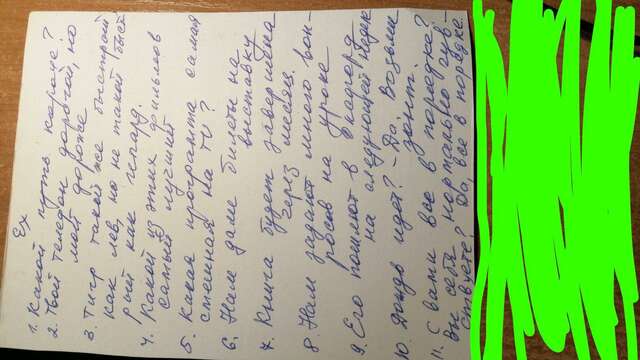 Ex
1. Какой путь короче?
2. Твой телефон дорогой, но
мой дороже
3. Тигр такой же быстрый
как лев, но не такой быст
рый как гепард.
4. Какой из этих фильмов
самый лучший
5. Какая программа самая
смешная на TV?
6. Нам дали билеты на
выставку
7. Книга будет завершена
через месяц.
8 Нам задают много воп-
росов на уроке
9. Его пошлют в Брадфорд
на следующей неделе
10. Дождь идет? - Да. Возьми
зонт.
11. С вами все в порядке?
Вы себя нормально чув-
ствуете? Да, все в порядке.